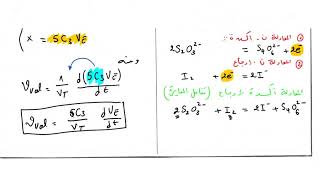 ( x = 5C₃ V_E
ومنه
𝒱vol = 1/V_T d(5C₃ V_E)/dt
𝒱vol = 5C₃/V_T dV_E/dt
① المعادلة ن. أكسدة:
2S₂O₃²⁻ = S₄O₆²⁻ + 2e⁻
② المعادلة ن. إرجاع
I₂ + 2e⁻ = 2I⁻
المعادلة أكسدة إرجاع (تفاعل المعايرة)
2S₂O₃²⁻ + I₂ = 2I⁻ + S₄O₆²⁻